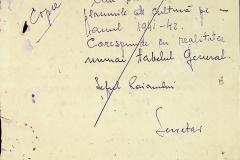 Copie
planurile de cultură pe
anul 1941-42.
Corespunde cu realitatea
numai tabelul General.
Șeful Raionului
Secretar